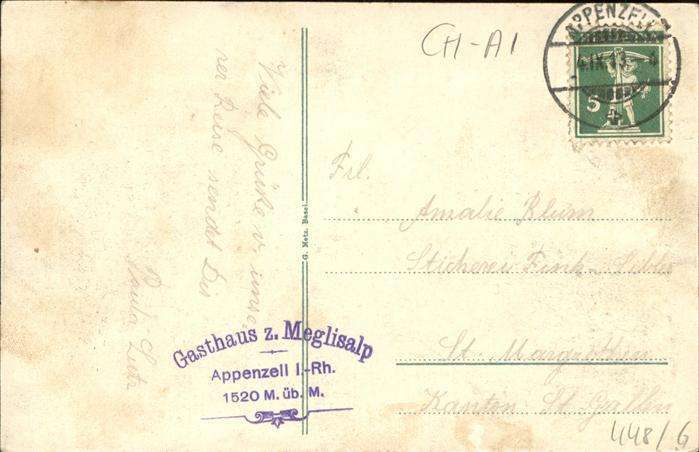 CH-AI
APPENZELL
4.IX.13.
5
Viele Grüsse v. unse
rer Reise sendet Dir
Paula
G. Metz, Basel.
Frl.
Amalie Blum
Stickerei
St. Margrethen
Kanton St. Gallen
Gasthaus z. Meglisalp
Appenzell I.-Rh.
1520 M. üb. M.
448/6